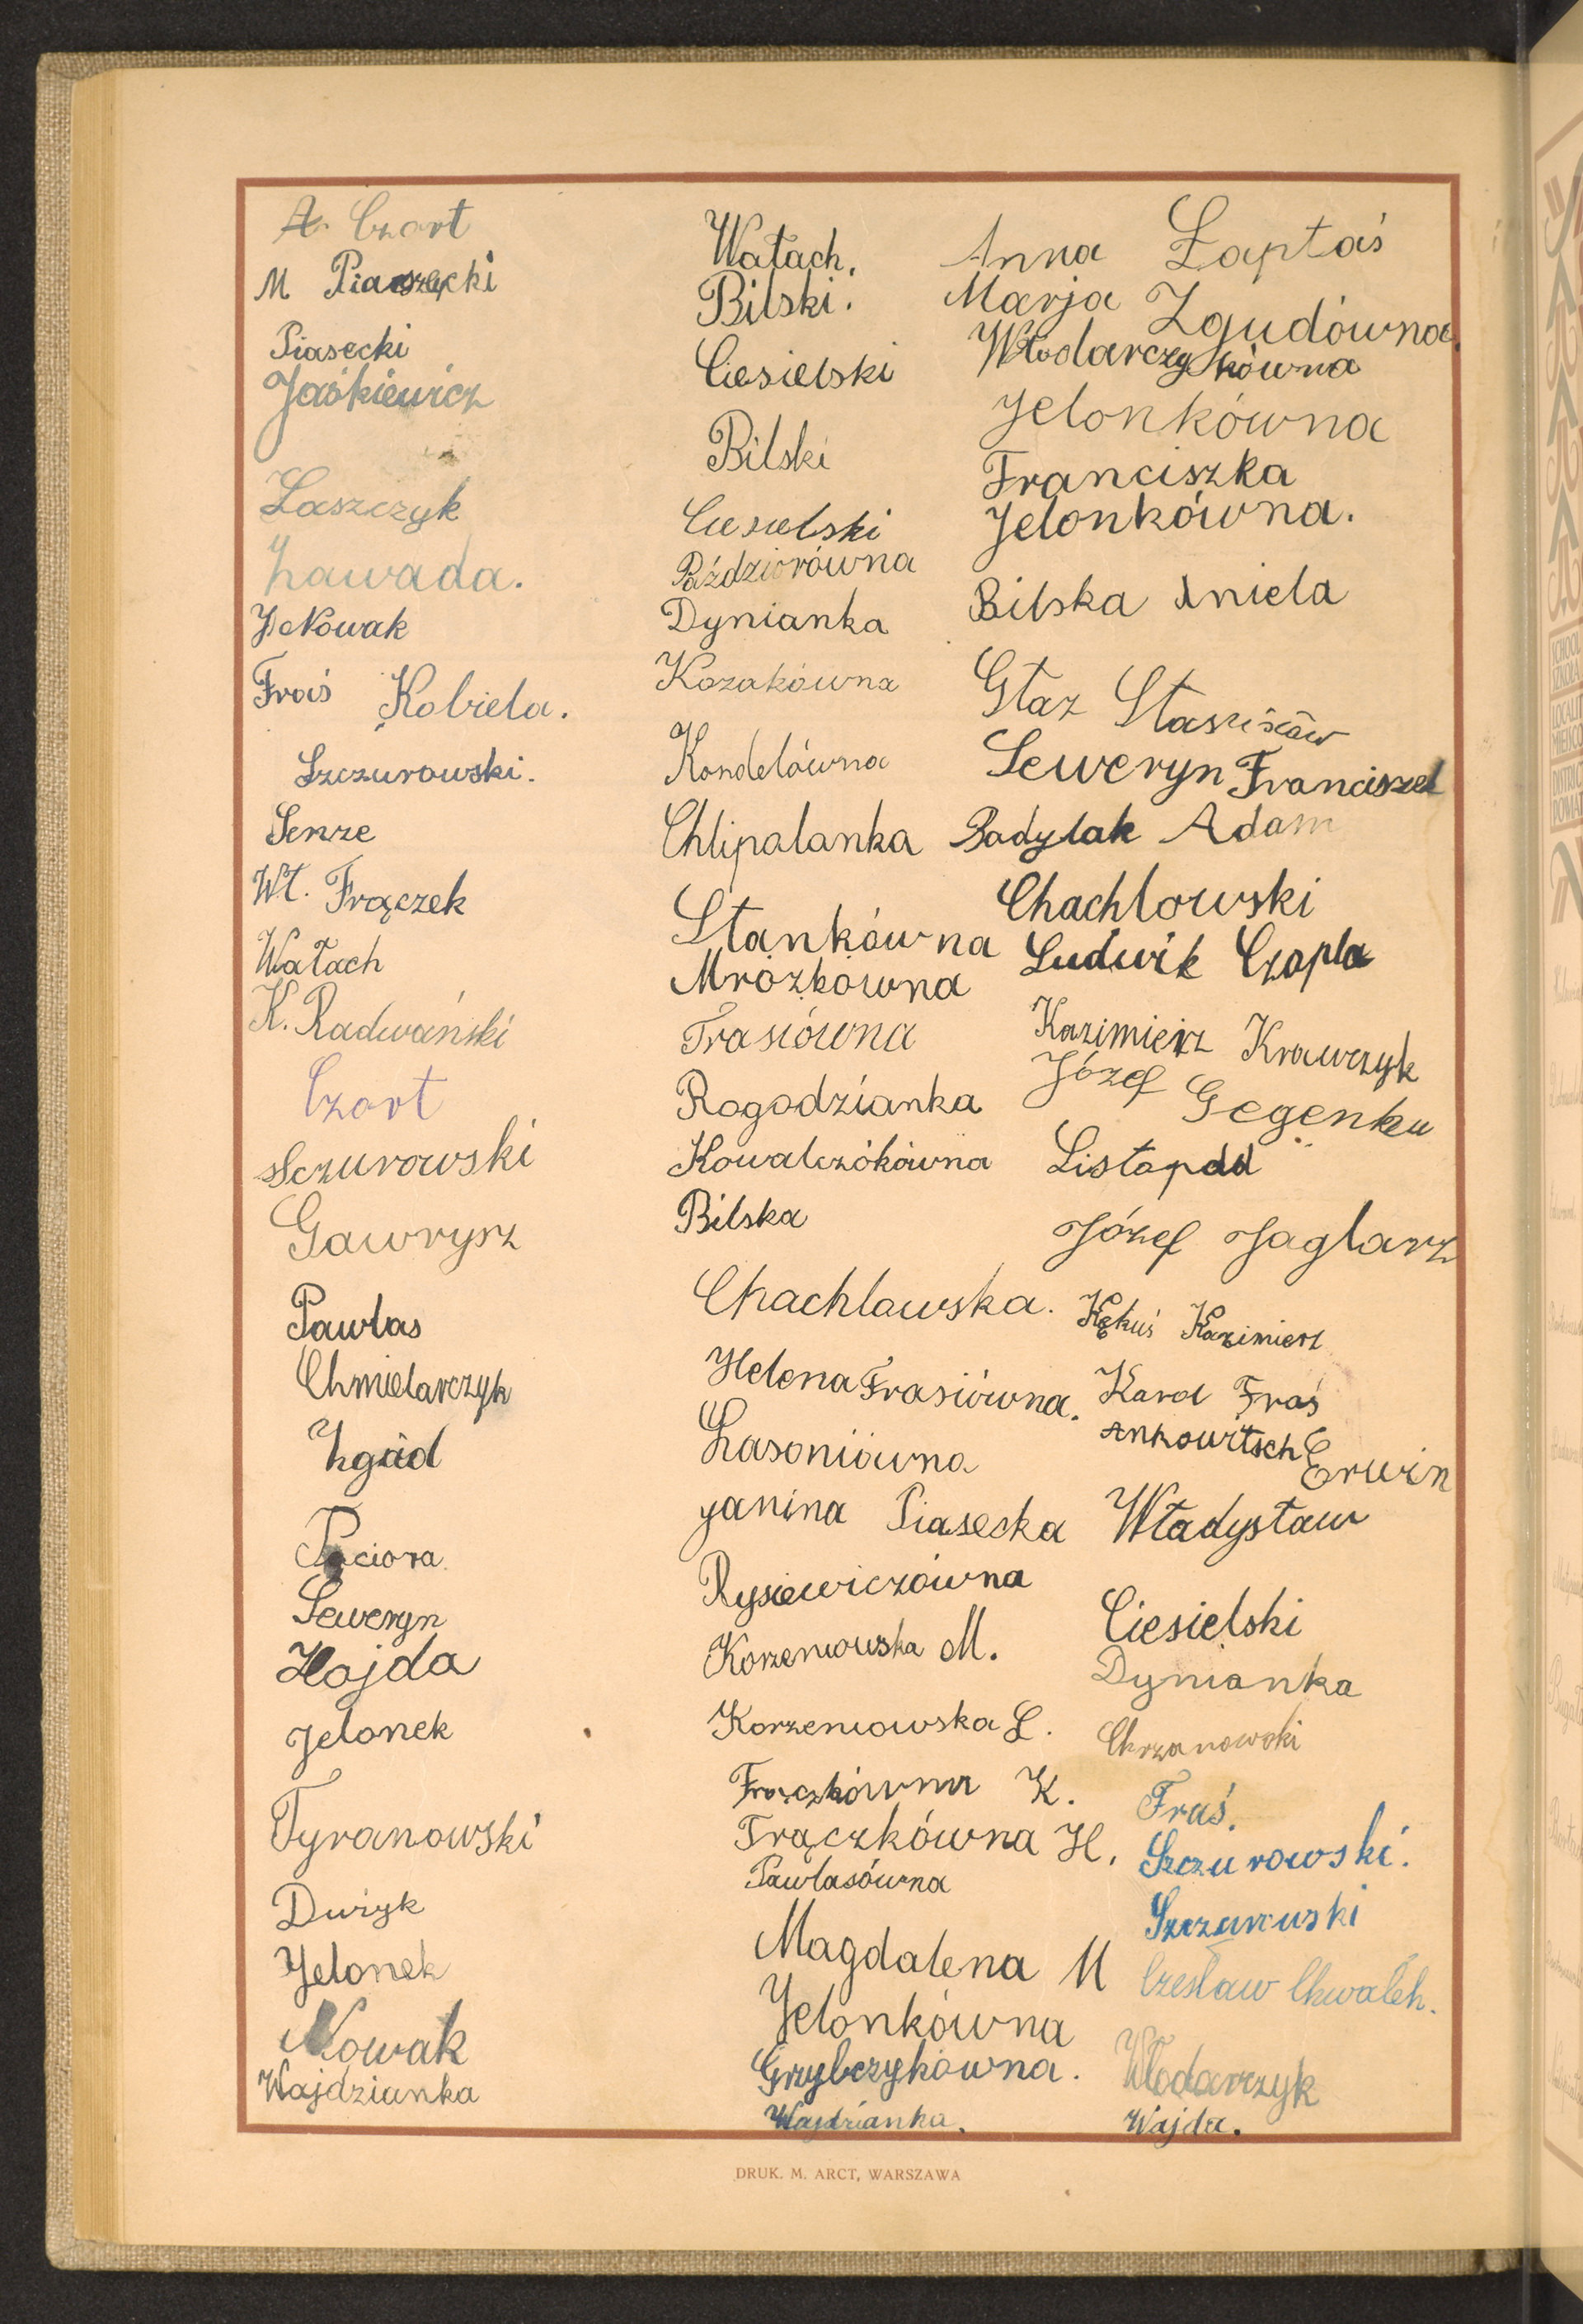 A. Czort
M Piasecki
Piasecki
Jaśkiewicz
Laszczyk
Zawada.
J Nowak
Fraś Kobiela.
Szczurowski.
Senze
Wł. Frączek
Wałach
K. Radwański
Czort
Sczurowski
Gawrysz
Pawlas
Chmielarczyk
Zgúd
Paciora
Seweryn
Hojda
Jelonek
Tyranowski
Dużyk
Jelonek
Nowak
Wajdzianka
Wałach.
Bilski.
Ciesielski
Bilski
Ciesielski
Październa
Dynianka
Kozakówna
Kondelówna
Chlipalanka
Stankówna
Mrózkówna
Frasiówna
Rogodzianka
Kowalczókówna
Bilska
Chachlowska.
Helena Frasiówna.
Lasoniówna
Janina Piasecka
Rysiewiczówna
Korzeniowska M.
Korzeniowska L.
Frączkówna K.
Frączkówna H.
Pawlasówna
Magdalena M
Jelonkówna
Grzybczykówna.
Wajdzianka.
Anna Łaptaś
Marja Zgudówna.
Włodarczykówna
Jelonkówna
Franciszka
Jelonkówna.
Bilska Aniela
Głaz Stanisław
Seweryn Franciszek
Badylak Adam
Chachlowski
Ludwik Czapla
Kazimierz Krawczyk
Józef Gegenku
Listopad
Józef Jaglarz
Kękuś Kazimierz
Karol Fraś
Ankowitsch Erwin
Władysław
Ciesielski
Dynianka
Chrzanowski
Fraś.
Szczurowski.
Szczurowski
Czesław Chwałek.
Włodarczyk
Wajda.
DRUK. M. ARCT, WARSZAWA